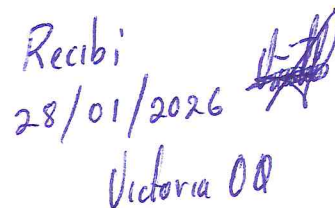 Recibi
28/01/2026
Victoria OQ